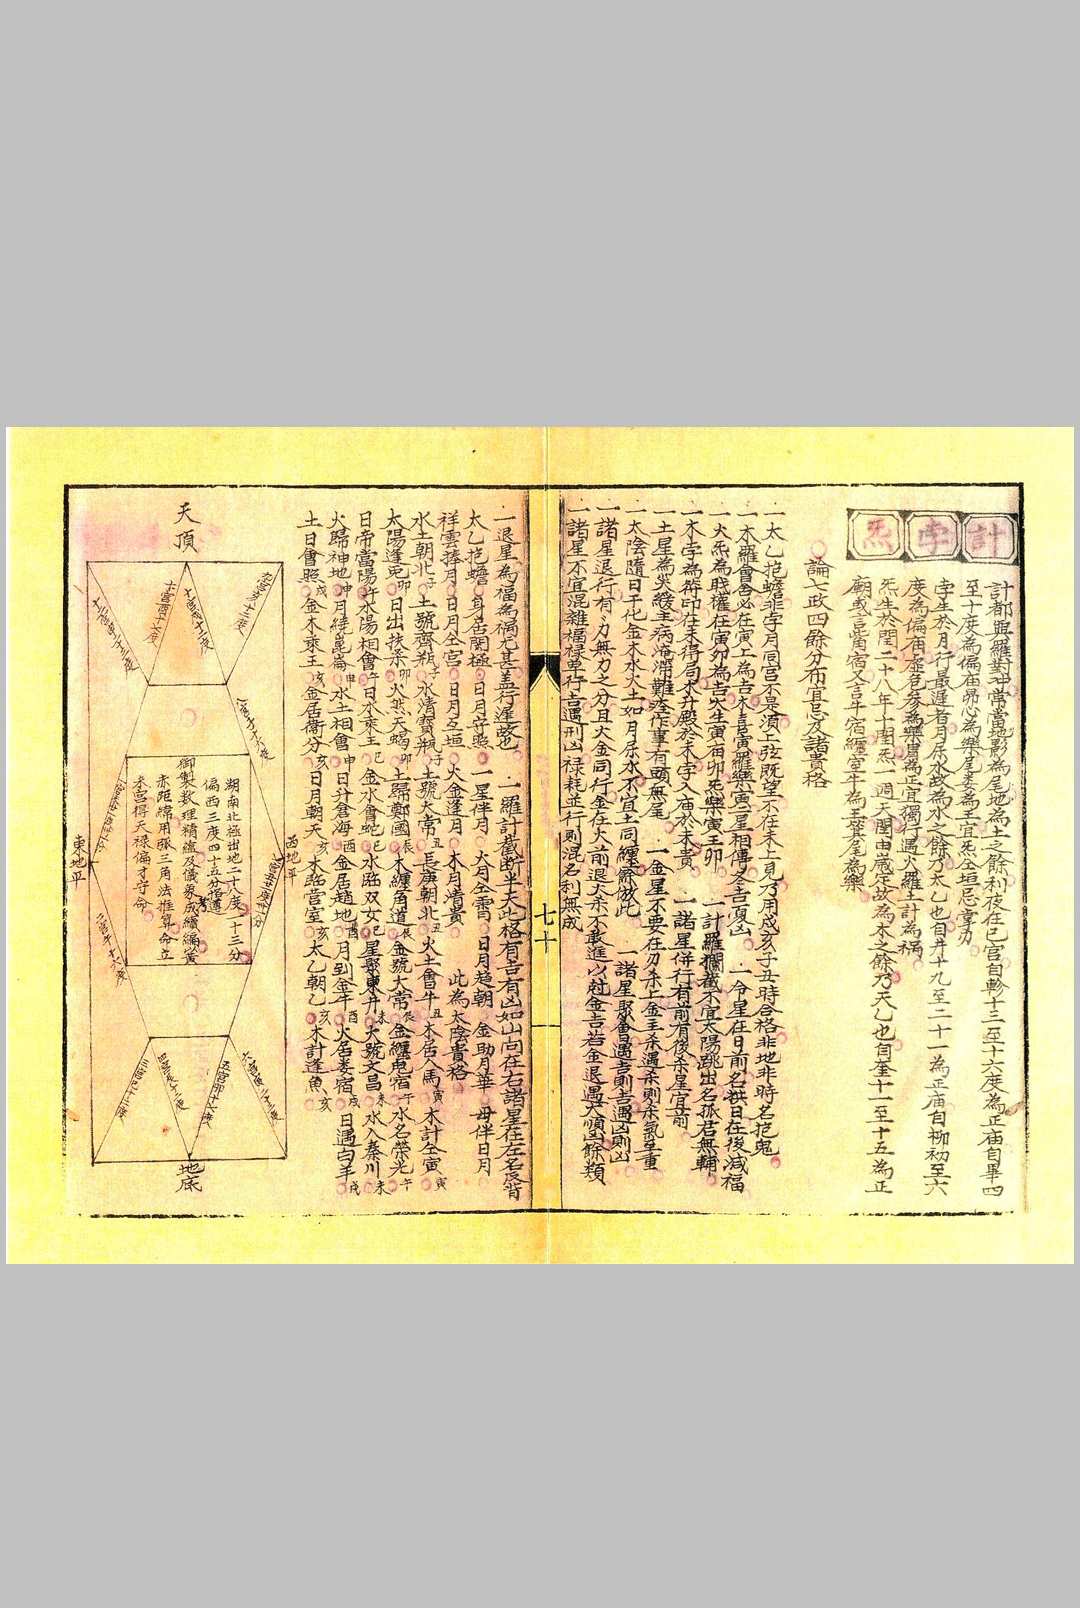 計
孛
炁
計都與羅對冲常當地影為尾地為土之餘利夜在巳宮自軫十三至十六度為正庙自畢四
至十度為偏庙昴心為樂尾婁為王宜炁全垣忌掌刃
孛生於月行最遲者月尿水故為水之餘乃太乙也自井十九至二十一為正庙自柳初至六
度為偏庙虛危參為樂胃為正宜獨行遇火羅土計為禍
炁生於閏二十八年十閏炁一週天閏由歲定故為木之餘乃天乙也自奎十一至十五為正
廟或言觜宿又言牛宿纏室牛為王箕尾為樂
論七政四餘分布宜忌及諸貴格
一太乙抱蟾非孛月同宮不是須上弦既望不在未上見乃用戌亥子丑時合格非地非時名抱鬼
一木羅會舍必在寅上為吉木喜寅羅樂寅二星相傳
一令星在日前名拱日在後減福
一火炁為賤權在寅卯為吉火生寅庙卯炁樂寅王卯
一計羅攔截不宜太陽跳出名孤君無輔
一木孛為符印在未得局木升殿於未孛入庙於未貴
一諸星倂行有前有後杀星宜前
一土星為災緩主病淹滯難痊作事有頭無尾
一金星不要在刃杀上金主杀遇杀則杀氣至重
一太陰隨日干化金木水火土如月尿水不宜土同纏餘倣此
一諸星聚會遇吉則吉遇凶則凶
一諸星退行有力無力之分且火金同行金在火前退火杀不敢進以尅金吉若金退遇火順凶餘類
一諸星不宜混雜福祿單行吉遇刑凶祿耗並行則混名利無成
七十
一退星為福為禍尤甚盖行遲故也
一羅計截斷半天此格有吉有凶如山向在右諸星在左名反背
太乙抱蟾
身居閑極
日月並照
一星伴月
火月全霄
日月趍朝
金助月華
毋伴日月
祥雲捧月
日月全宮
日月夕垣
火金逢月
木月清貴
此為太陰貴格
水土朝北子
土號齊粃子
水清寶瓶子
土號大常丑
長庚朝北丑
火土會牛丑
木居人馬寅
木計全寅寅
太陽逢兎卯
日出扶桑卯
火焣天蝎卯
土歸鄭國辰
木纏角道辰
金號大常辰
金纏鬼宿午
水名榮光午
日帝當陽午
水陽相會午
日水乘王巳
金水會蛇巳
水臨双女巳
星聚東井未
火號文昌未
水入秦川未
火歸神地申
月繞崑崙申
水土相會申
日升倉海酉
金居趙地酉
月到金牛酉
火居娄宿戌
日遇白羊戌
土日會照戌
金木乘王亥
金居衛分亥
日月朝天亥
木臨營室亥
太乙朝乙亥
木計逢魚亥
天頂
西地平
湖南北極出地二十八度一十三分
偏西三度四十五分指遵
御製数理精蘊及儀象考成續編黃
赤距緯用張三角法推算命立
未宮得天祿偏才守命
東地平
地底